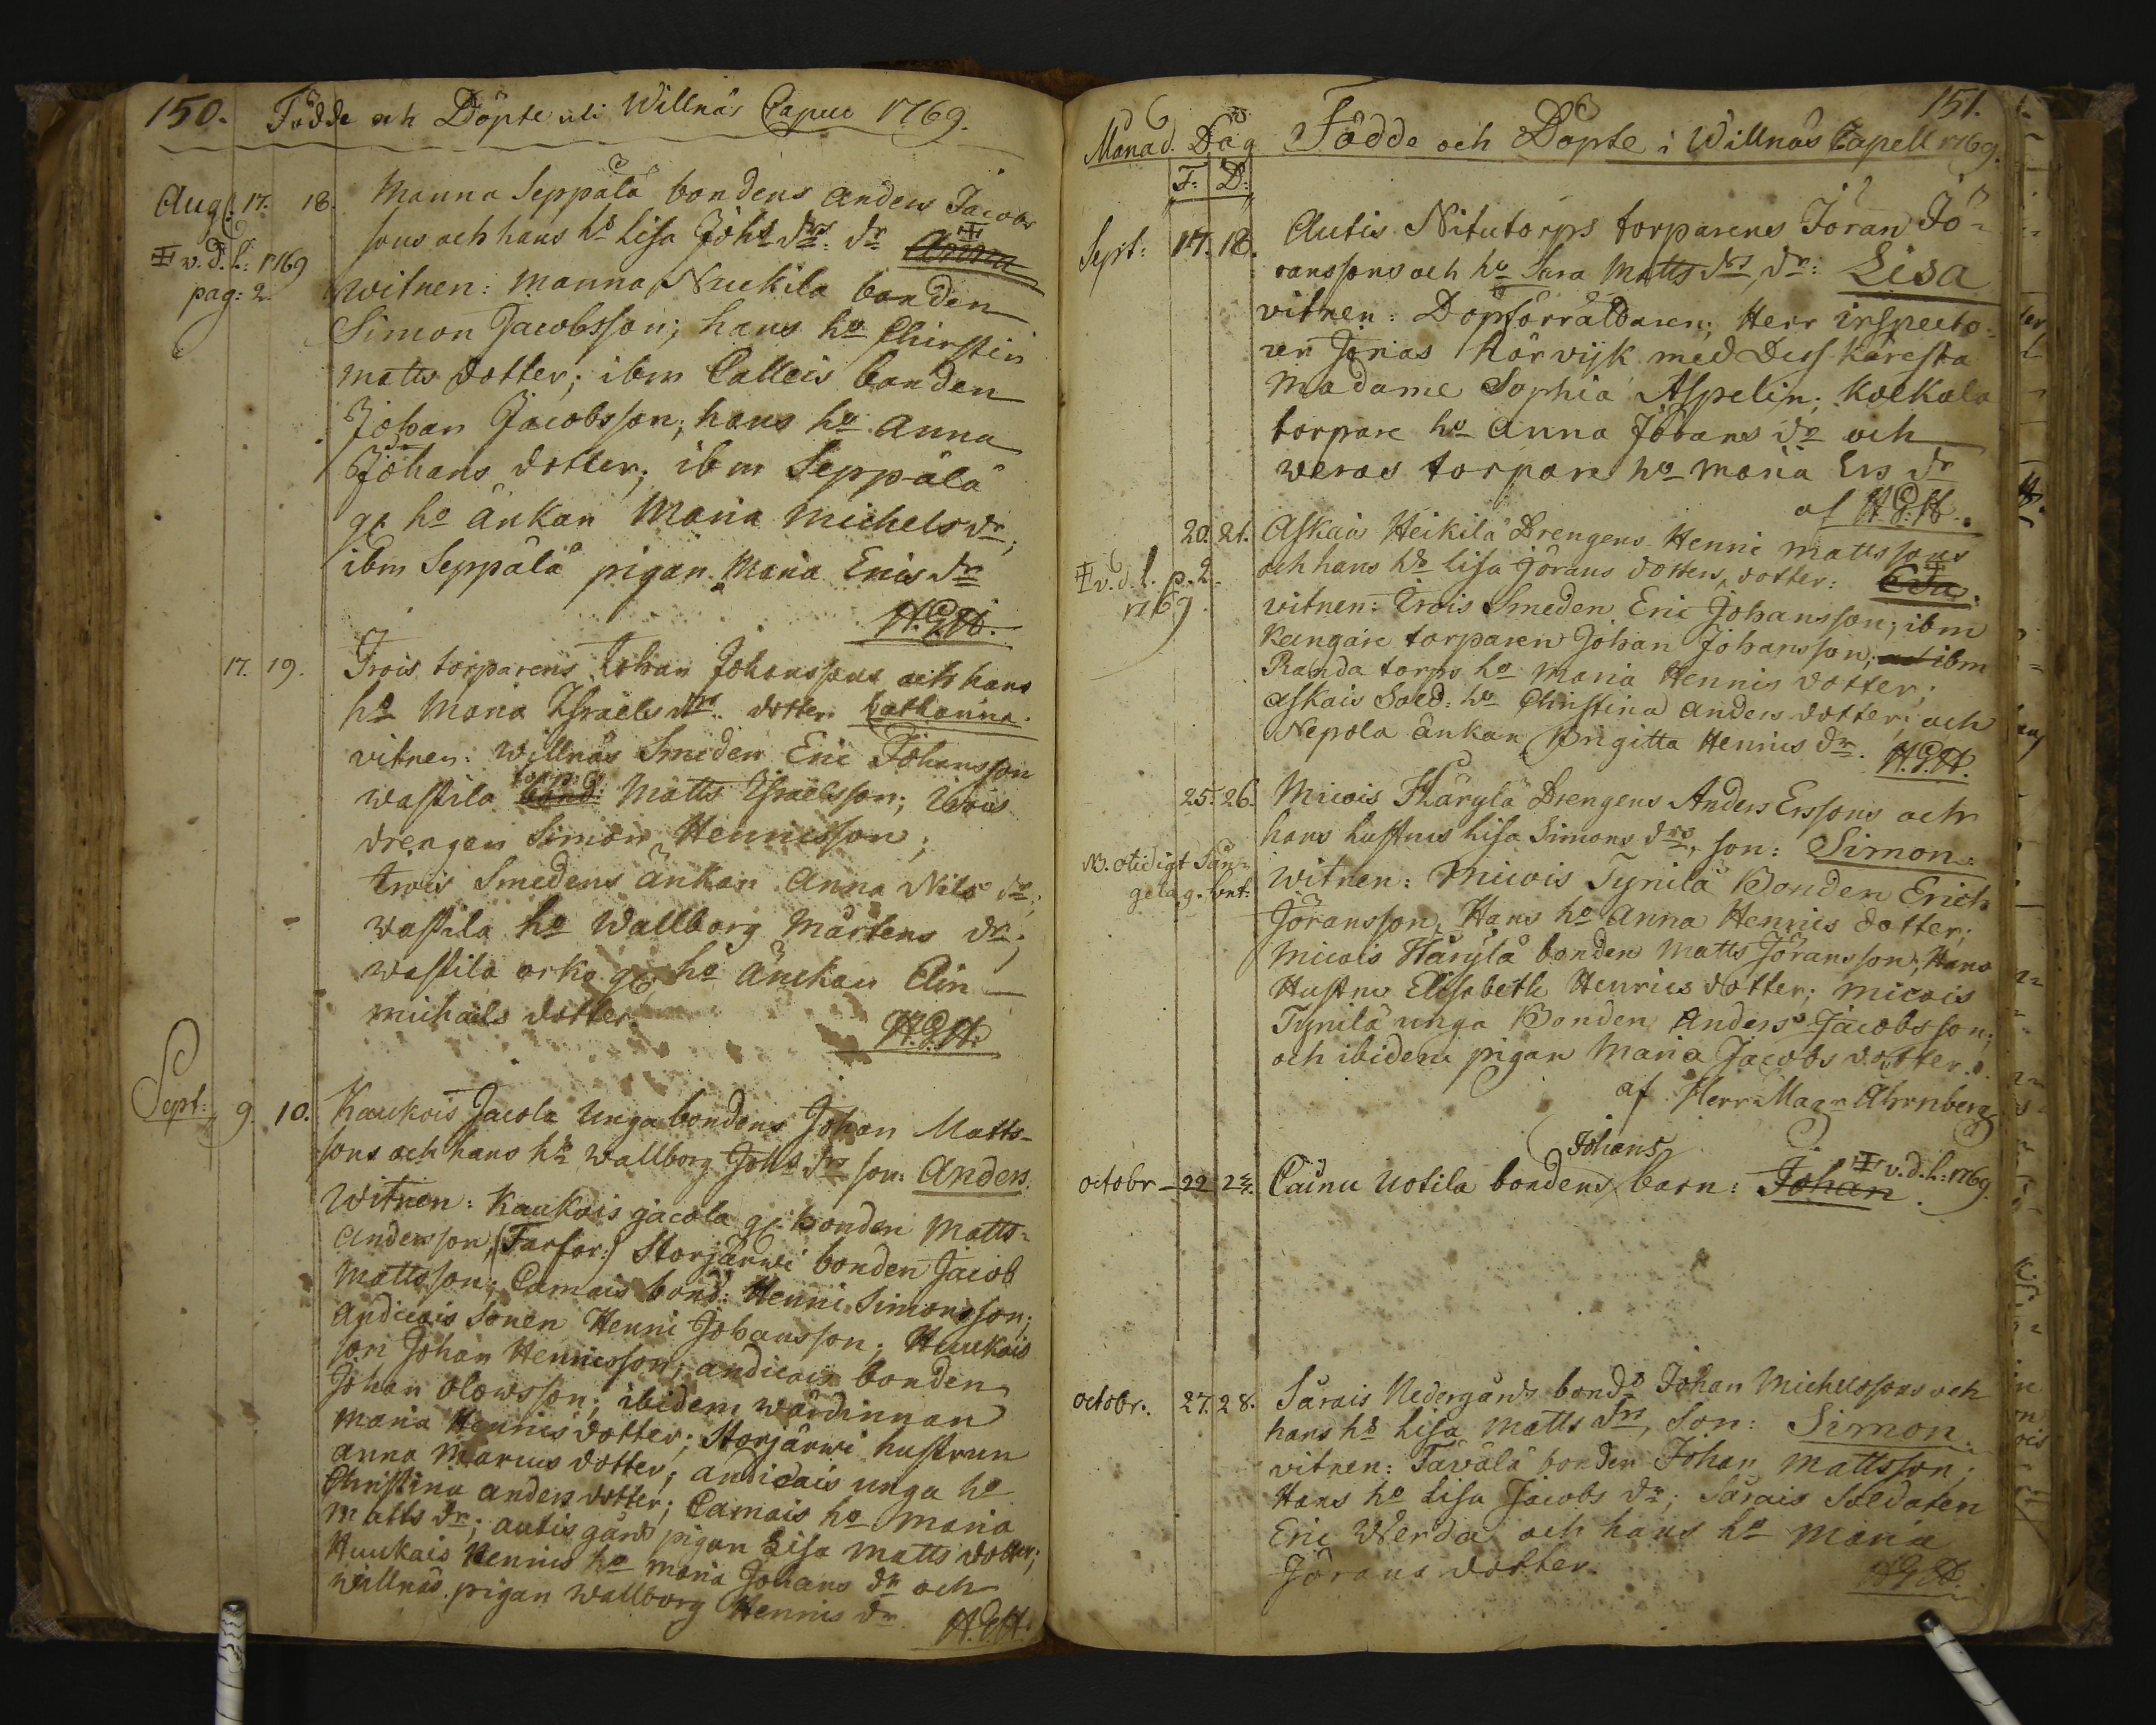 150. Födde och Döpte uti Willnäs Capell 1769.
Aug: 17. 18. Manna Seppälä bondens anders Jacobs
sons och hans hs Lisa Johs drs: dr Anna
v. d. l: 1769
pag: 2
witnen: Manna Nuckila bonden
Simon Jacobsson; hans ho Christin
Matts dotter; ibm Calleis bonden
Johan Jacobsson; hans ho Anna
Johans dotter; ibm Seppälä
gl ho änkan Maria Michels dr;
ibm Seppälä pigan Maria Erics dr
H.G.H.
17. 19. Irois torparens Johan Johanssons och hans
hs Maria Israels drs dotter Catharina.
vitnen: Willnäs Smeden Eric Johansson
wastila torp: bond: Matts Israelsson; Irois
drengen Simon Henricsson;
Irois Smedens änkan Anna Nils dr;
wastila ho Wallborg Mårtens dr;
wastila orko gl ho änckan Elin
michaels dotter.
H.G.H.
Sept: 9. 10. Kaukois Jacola Unga bondens Johan Matts-
sons och hans hs Wallborg Johs drs son: Anders.
Witnen: Kaukois jacola gl bonden Matts
Andersson, (Farfar:) Storjärwi bonden Jacob
Mattsson; Camais bond: Henric Simonsson;
andicais Sonen Henric Johansson; Huukais
son Johan Henricsson; andicais bonden
Johan Olowsson; ibidem wärdinnan
Maria Henrics dotter; Storjärwi hustrun
Anna Marcus dotter; andicais unga ho
Christina anders dotter; Camais ho Maria
Matts dr; autis gård pigan Lisa Matts dotter;
Huukais Henrics ho Maria Johans dr och
willnäs pigan Wallborg Henrics dr.
H.G.H.
151.
Månad. Dag Födde och Döpte i Willnäs Capell 1769.
F: D:
Sept: 17. 18. Autis Nitutorps torparens Jöran Jö-
ranssons och hs Sara Matts drs, dr: Lisa
vitnen: Döpförrättaren; Herr inspecto-
ren Jonas Hörvijk med Dess Käresta
Madame Sophia Aspelin; Koekala
torpare ho Anna Johans dr och
weras torpare ho Maria Ers dr
af H.G.H.
20. 21. Askais Heikilä Drengens Henric Mattssons
och hans hs Lisa Jörans dotters, dotter:
v. d. l. p. 2.
1769.
vitnen: Irois Smeden Eric Johansson; ibm
Kangare torparen Johan Johansson; ibm
Randa torps ho Maria Henrics dotter;
askais Sold: ho Christina Anders dotter; och
Nepola änkan Brigitta Henrics dr. H.G.H.
25. 26. Micois Häryla Drengens Anders Erssons och
hans hustrus Lisa Simons drs, son: Simon.
NB. otidigt Sän-
gelag. bnt:
Witnen: Micois Tynilä Bonden Erich
Jöransson, Hans ho Anna Henrics dotter;
Micois Häryla bonden Matts Jöransson; Hans
Hustru Elisabeth Henrics dotter; Micois
Tynilä unga Bonden Anders Jacobsson;
och ibidem pigan Maria Jacobs dotter.
af Herr Magr Ahrnberg
Johans
octobr 22 23. Cainu Uotila bondens barn: Johan v. d. l: 1769.
octobr. 27. 28. Särais Nedergårds bonds Johan Michelssons och
hans hs Lisa Matts drs, Son: Simon.
vitnen: Tävälä bonden Johan Mattsson;
Hans ho Lisa Jacobs dr; Särais Soldaten
Eric Werda och hans ho Maria
Jörans dotter.
H.G.H.